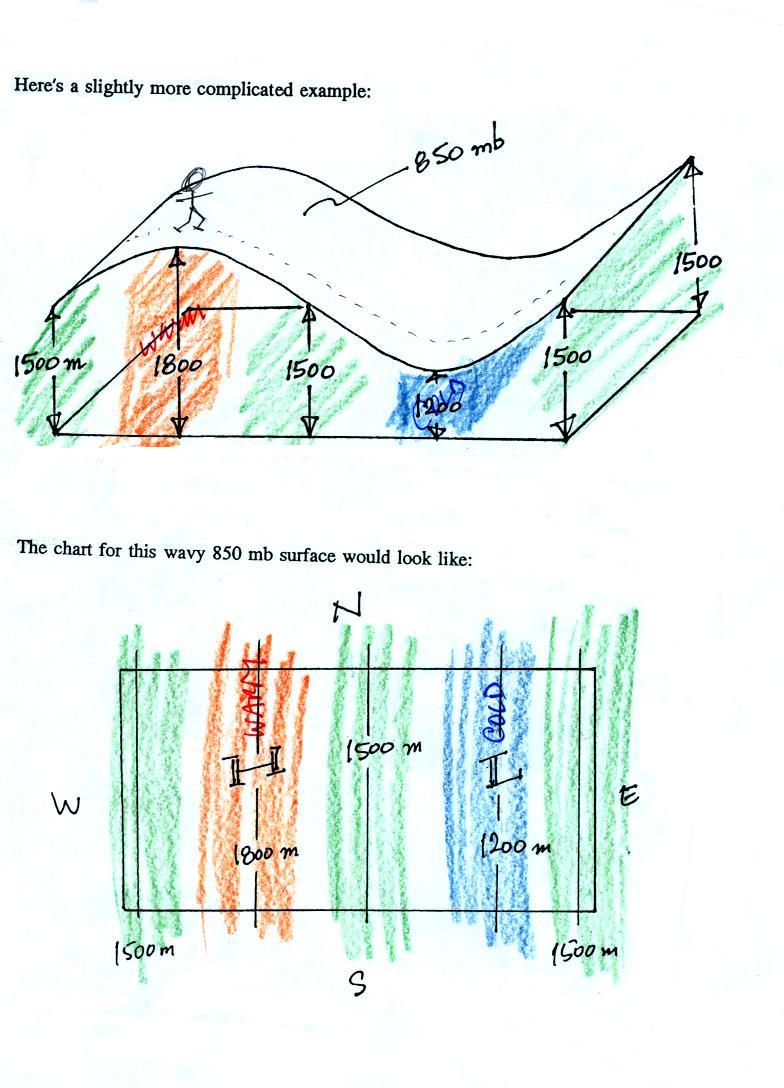 Here's a slightly more complicated example:
850 mb
1500
1500 m
warm
1800
1500
1200
COLD
1500
The chart for this wavy 850 mb surface would look like:
N
WARM
COLD
1500 m
H
L
W
E
1800 m
1200 m
1500 m
1500 m
S